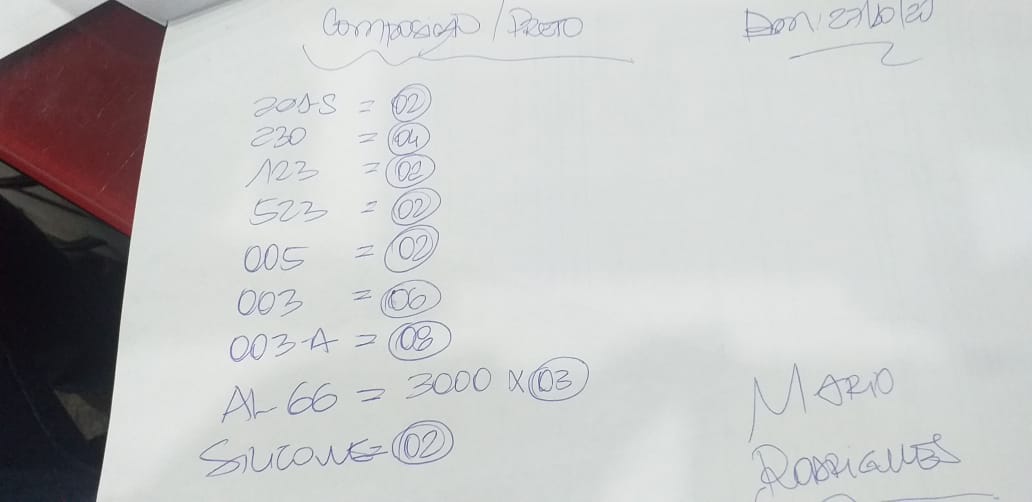 Composição / PRETO
230
123
= 02
= 04
= 02
523 = 02
005 = 02
003 = 06
003-A = 08
AL 66 = 3000 X 03
SILICONE = 02
MARIO
RODRIGUES